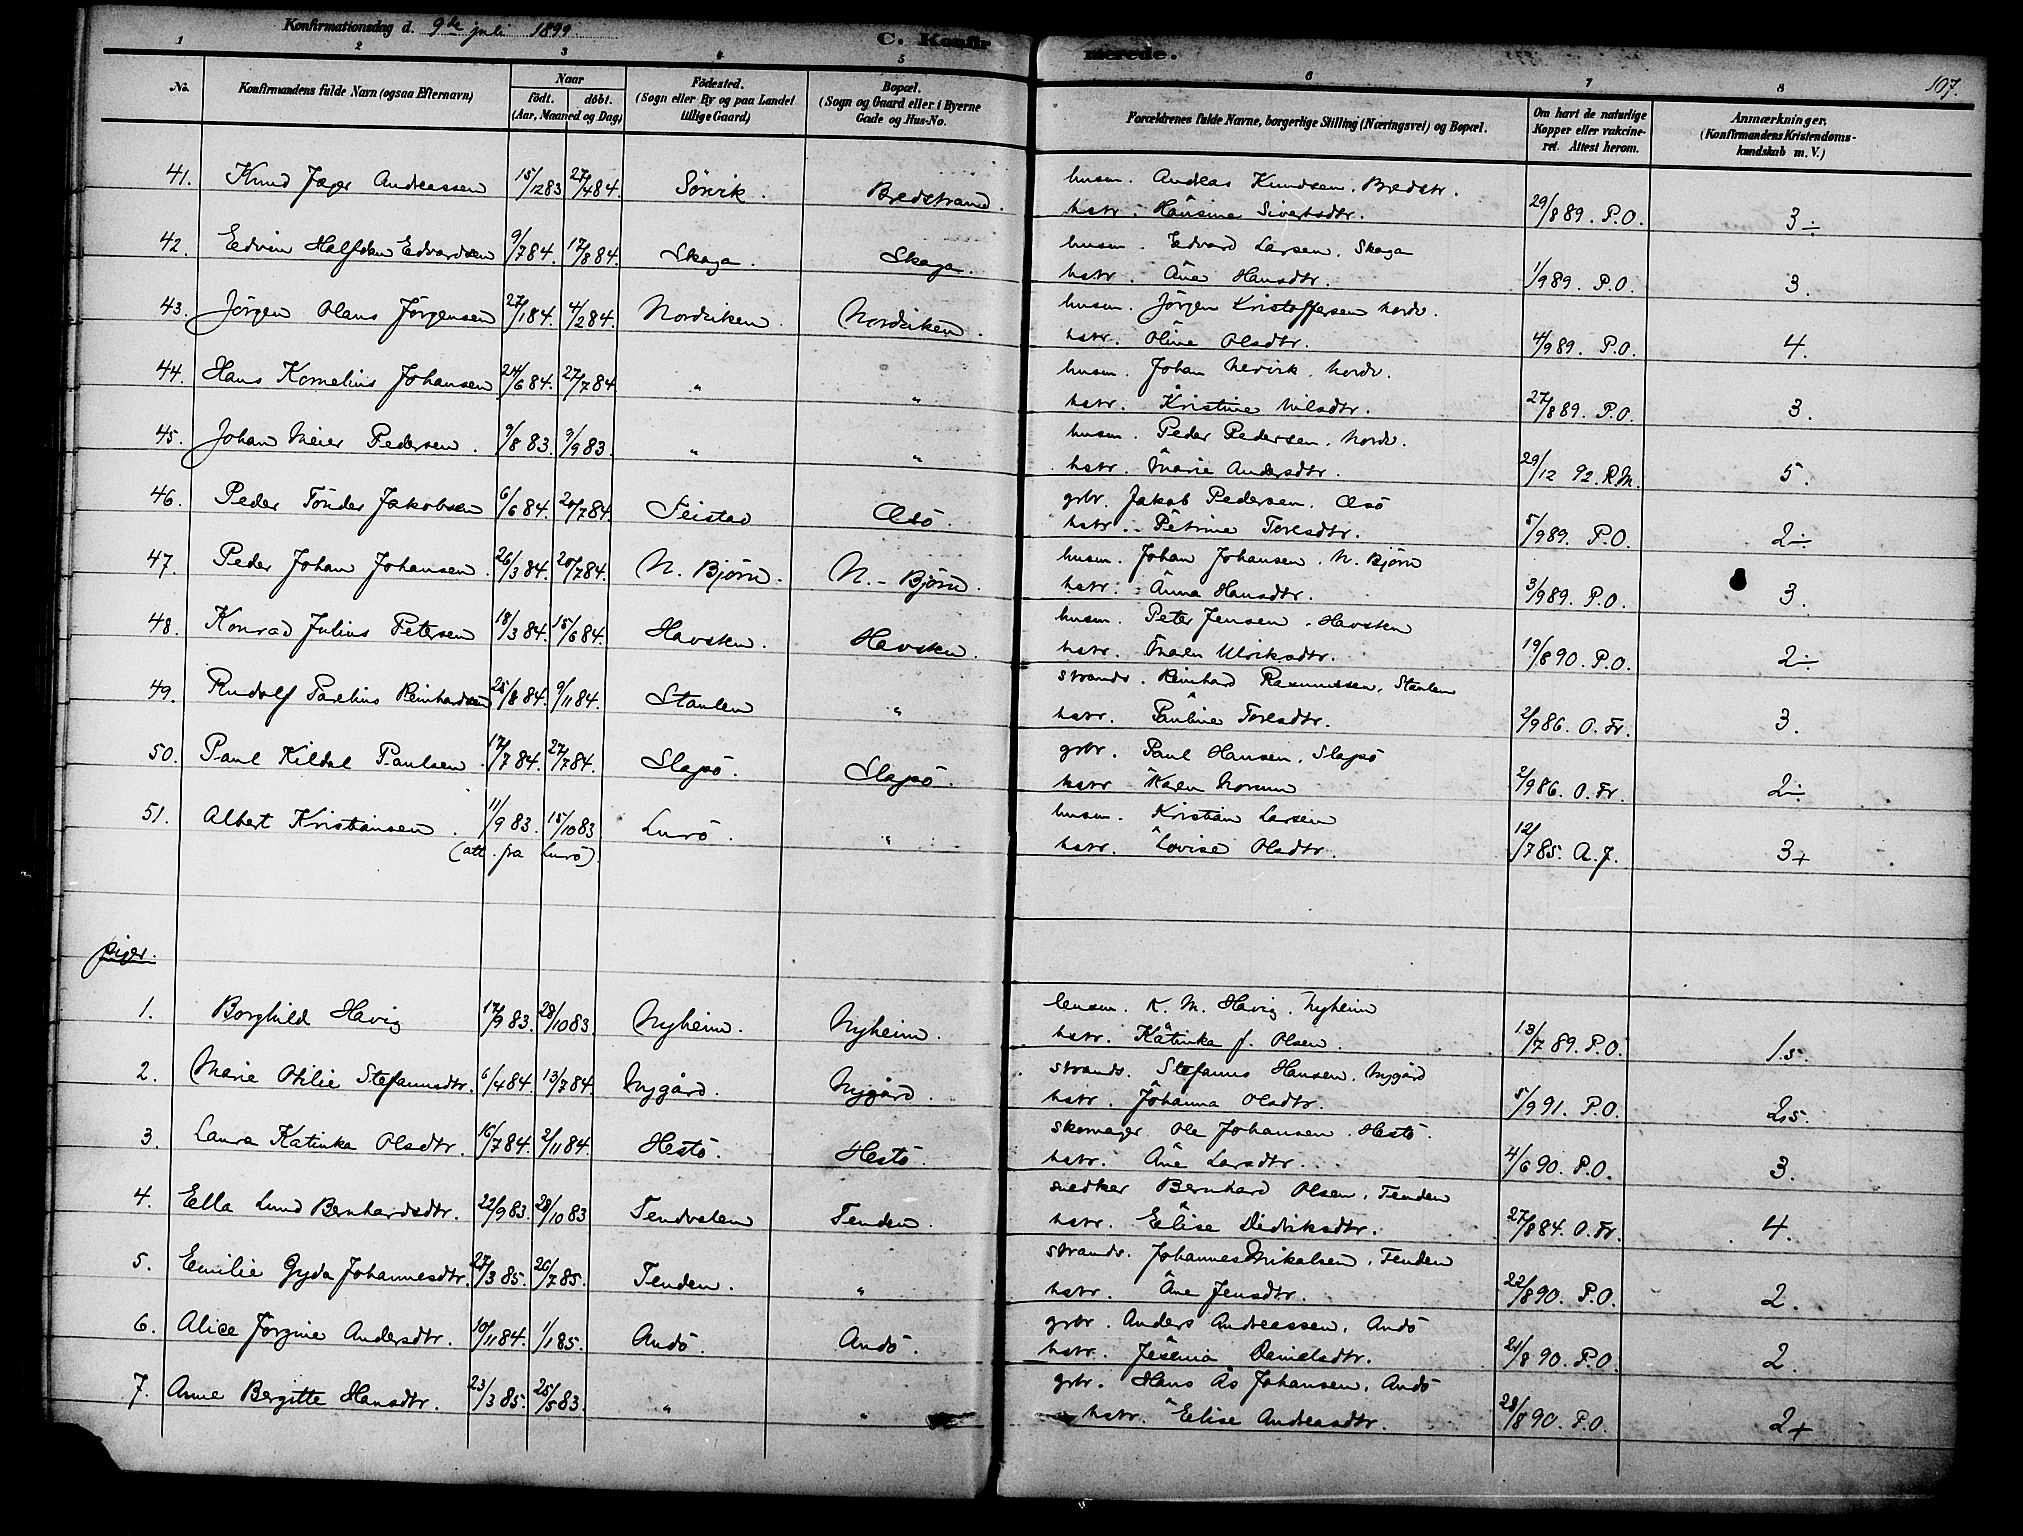 Konfirmationsdag d. 9de juli 1899.
C. Konfirmerede.
107.
1 2 3 4 5 6 7 8
No.
Konfirmandens fulde Navn (ogsaa Efternavn)
Naar
födt. döbt.
(Aar, Maaned og Dag)
Födested.
(Sogn eller By og paa Landet
tillige Gaard)
Bopæl.
(Sogn og Gaard eller i Byerne
Gade og Hus-No.
Forældrenes fulde Navne, borgerlige Stilling (Næringsvei) og Bopæl.
Om havt de naturlige
Kopper eller vakcine-
ret. Attest herom.
Anmærkninger.
(Konfirmandens Kristendoms-
kundskab m. V.)
41. Knud Jæger Andreassen 15/12 83 27/4 84. Sörvik. Bredstrand. husm. Andreas Knudsen. Bredstr.
hstr. Hansine Sivertsdtr. 29/8 89. P.O. 3÷
42. Edvin Halfdan Edvardsen 9/7 84. 17/8 84. Skaga. Skaga. husm. Edvard Larsen. Skaga
hstr. Ane Hansdtr. 1/9 89. P.O. 3.
43. Jörgen Olaus Jörgensen 27/1 84. 4/2 84. Nordviken. Nordviken. husm. Jörgen Kristoffersen Nordv.
hstr. Oline Olsdtr. 4/9 89. P.O. 4.
44. Hans Kornelius Johansen 24/6 84. 27/7 84 " " husm. Johan Nervik. Nordv.
hstr. Kristine Nilsdtr. 27/8 89. P.O. 3.
45. Johan Meier Pedersen. 9/8 83. 9/9 83. " " husm. Peder Pedersen. Nordv.
hstr. Marie Andersdtr. 29/12 92. R.M. 5.
46. Peder Tönder Jakobsen 6/6 84. 20/7 84. Seistad Æsö. grbr. Jakob Pedersen. Æsö
hstr. Petrine Toresdtr. 5/9 89. P.O. 2÷.
47. Peder Johan Johansen. 26/3 84. 20/7 84. N. Bjørn. N.-Bjørn. husm. Johan Johansen. N. Bjørn
hstr. Anna Hansdtr. 3/9 89. P.O. 3.
48. Konrad Julius Petersen 18/3 84. 15/6 84. Havsken. Havsken. husm. Peter Jensen. Havsken
hstr. Maren Ulriksdtr. 19/8 90. P.O. 2÷
49. Rudolf Parelius Reinhardsen 25/8 84. 9/11 84. Staulen " strands. Reinhard Rasmussen, Staulen
hstr. Pauline Toresdtr. 2/9 86. O. Fr. 3.
50. Paul Kildal Paulsen. 17/7 84. 27/7 84. Slapö. Slapö. grbr. Paul Hansen, Slapö
hstr Karen Norum 2/9 86. O. Fr. 2÷.
51. Albert Kristiansen. 11/9 83. 15/10 83 Lurö. " husm. Kristian Larsen
(att. fra Lurö). hstr. Lovise Olsdtr. 12/7 85. A. J. 3+
piger.
1. Borghild Havig 17/9 83. 28/10 83. Nyheim. Nyheim. lensm. K. M. Havig. Nyheim
hstr. Katinka f. Olsen. 13/7 89. P.O. 1.5.
2. Marie Otilie Stefanusdtr. 6/4 84. 13/7 84. Nygård. Nygård. strands. Stefanus Hansen. Nygård
hstr. Johanna Olsdtr. 5/9 91. P.O. 2,5.
3. Laura Katinka Olsdtr. 16/7 84. 2/11 84. Hestö. Hestö. skomager Ole Johansen. Hestö.
hstr. Ane Larsdtr. 4/6 90. P.O. 3.
4. Ella Lund Bernhardsdtr. 22/9 83. 28/10 83 Tendvalen Tenden. snedker Bernhard Olsen. Tenden
hstr. Elise Didriksdtr. 27/8 84. O. Fr. 4.
5. Emilie Gyda Johannesdtr. 27/3 85. 26/7 85. Tenden. " strands. Johannes Mikalsen. Tenden
hstr. Ane Jensdtr. 22/8 90. P.O. 2.
6. Alice Jorgine Andersdtr. 10/11 84. 1/1 85. Andö. Andö. grbr. Anders Andreassen. Andö
hstr. Jesenia Danielsdtr. 21/8 90. P.O. 2.
7. Anne Bergitte Hansdtr. 23/3 85. 25/5 83. " " grbr. Hans Ås Johansen. Andö
hstr. Elise Andreasdtr. 28/8 90. P.O. 2+